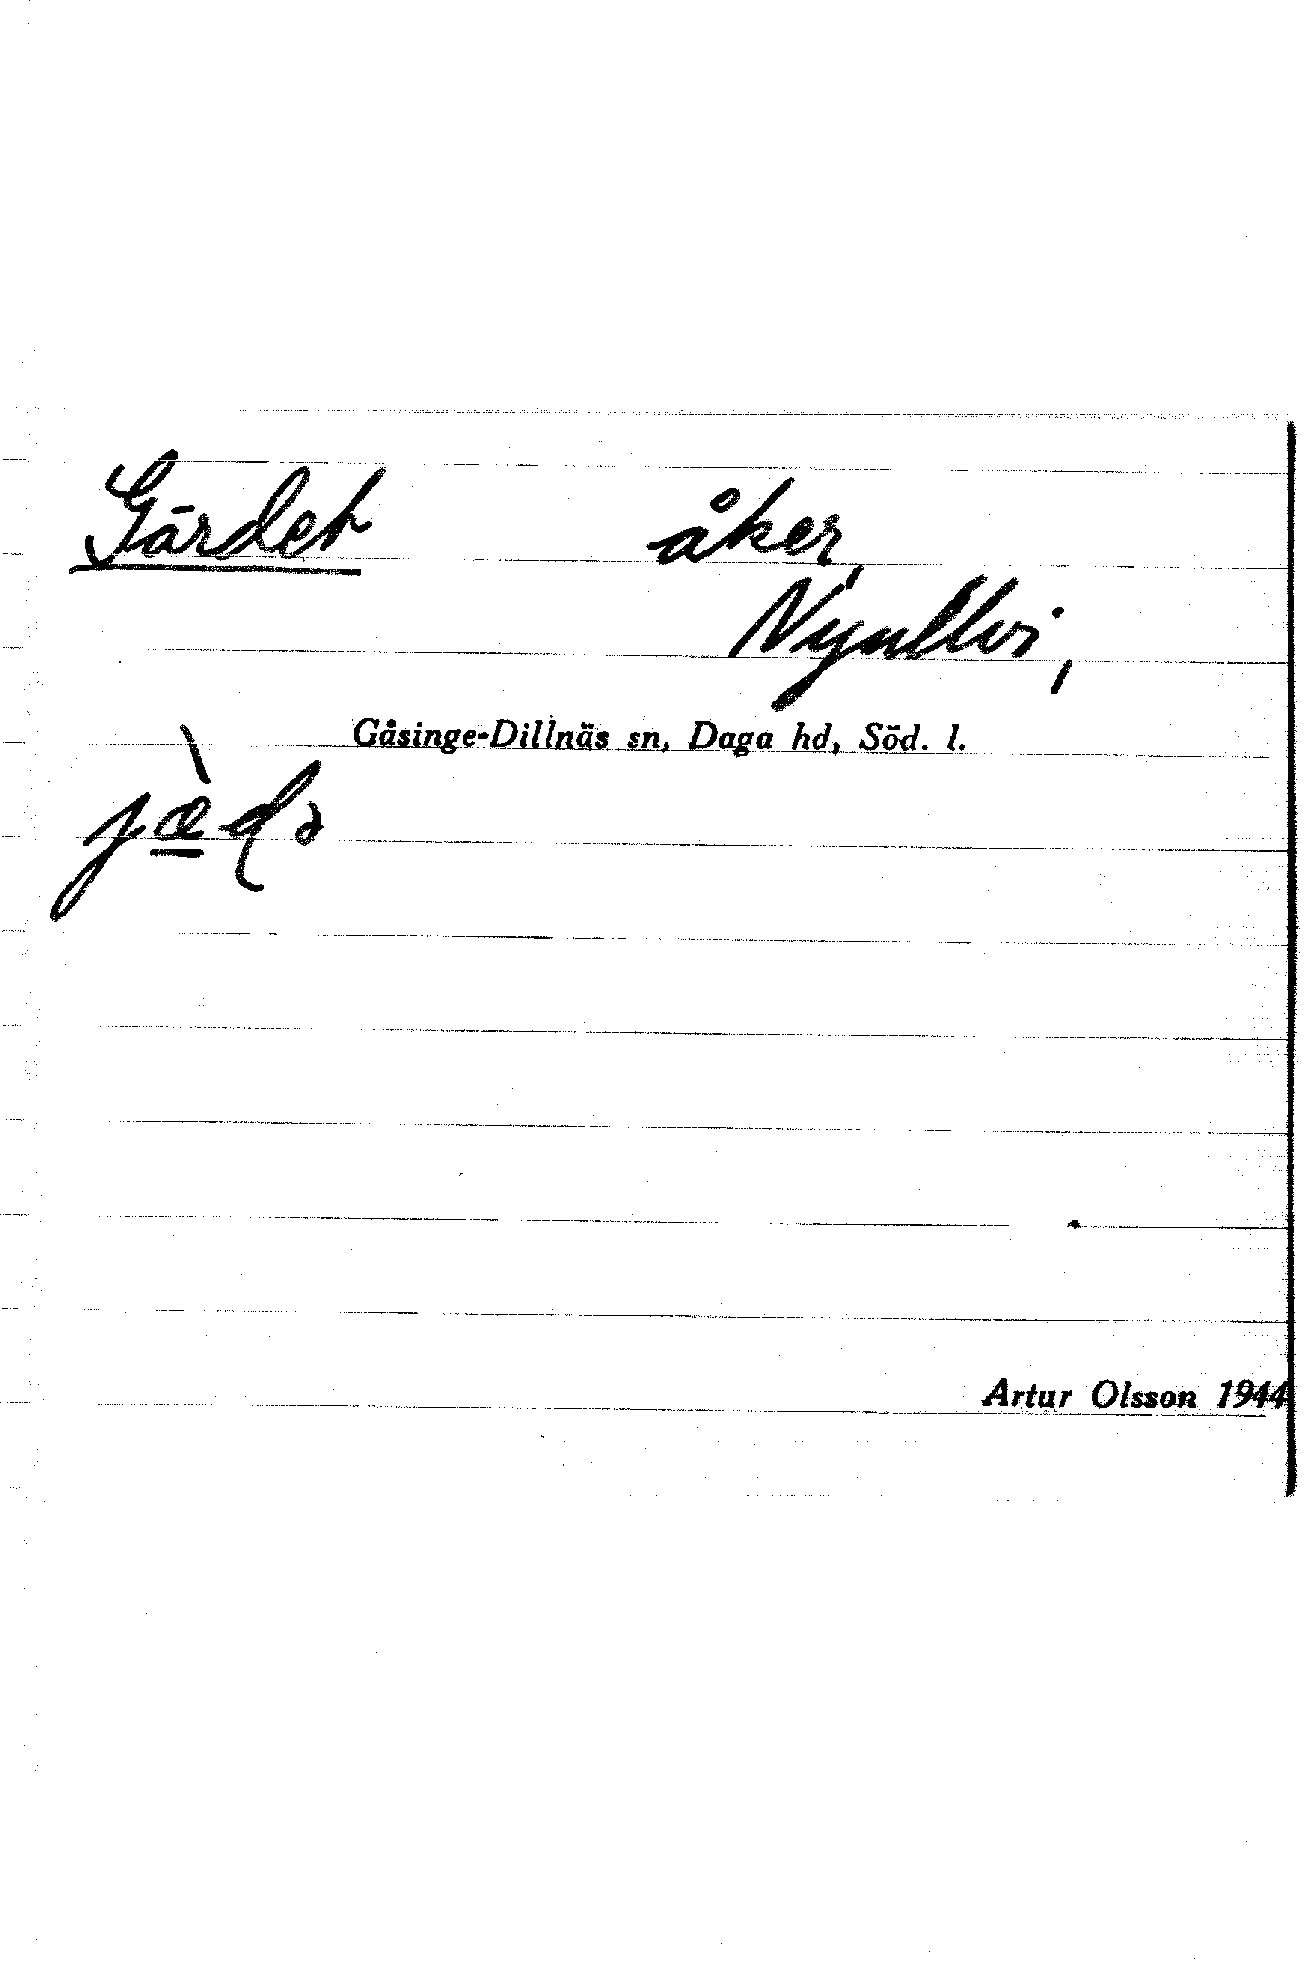 Gärdet åker,
Nynäbvi,
Gåsinge-Dillnäs sn, Daga hd, Söd. l.
jæ̲̀ɖə
Artur Olsson 1944